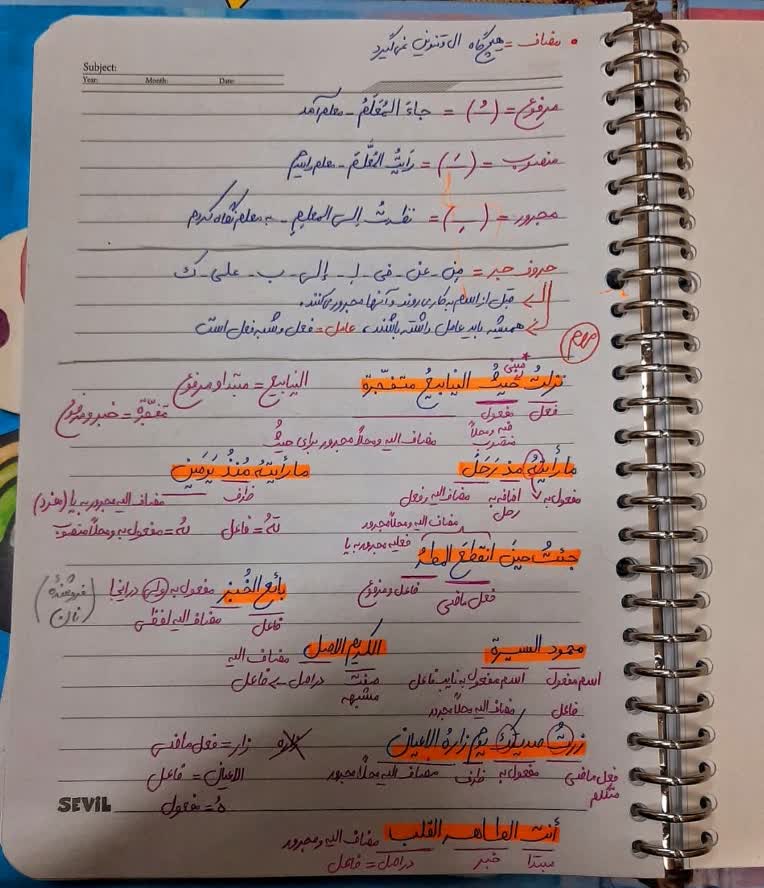 • مضاف = هیچگاه ال و تنوین نمی‌گیرد
Subject:
Year: Month: Date:
مرفوع = (ـُ) = جاءَ المُعَلِّمُ - معلم آمد
منصوب = (ـَ) = رَأیتُ المُعَلَّمَ - معلم را دیدم
مجرور = (ـِ) = نظرتُ إلی المعلمِ - به معلم نگاه کردم
حروف جر = مِن - عن - فی - لِـ - إلی - ب - علی - ک
قبل از اسم به کار می روند و آنها مجرور می کنند.
همیشه باید عامل داشته باشند، عامل = فعل و شبه فعل است
مهم
مبنی
نزلتُ حیثُ الینابیعُ متفجّرة الینابیع = مبتدا و مرفوع
فعل مفعول فیه و محلاً منصوب متفجّرة = خبر و مرفوع
مضاف الیه و محلاً مجرور برای حیثُ
ما رأیتهُ مذ رَحَلَ ما رأیتهُ مُنذُ یَومَینِ
مفعول به اضافه به رحل مضاف الیه فعل ظرف مضاف الیه مجرور به یا
مضاف الیه و محلاً مجرور تُ = فاعل هُ = مفعول به و محلاً منصوب
جئتُ حینَ انقطَعَ المطرُ
فعل ماضی فاعل و مرفوع
بائع الخُبزِ مفعول به در اینجا
فاعل مضاف الیه لفظی
(فروشندهٔ نان)
محمود السیرة الکریم الاصل مضاف الیه
اسم مفعول اسم مفعول به نایب فاعل صفت مشبهه در اصل ← فاعل
فاعل مضاف الیه محلاً مجرور
زرتُ صدیقکَ یومَ زارهُ الاعیان زار = فعل ماضی
فعل ماضی متکلم مفعول به ظرف مضاف الیه محلاً مجرور الاعیان = فاعل
هُ = مفعول
SEVIL
أنت الطاهر القلب مضاف الیه و مجرور
مبتدا خبر در اصل = فاعل